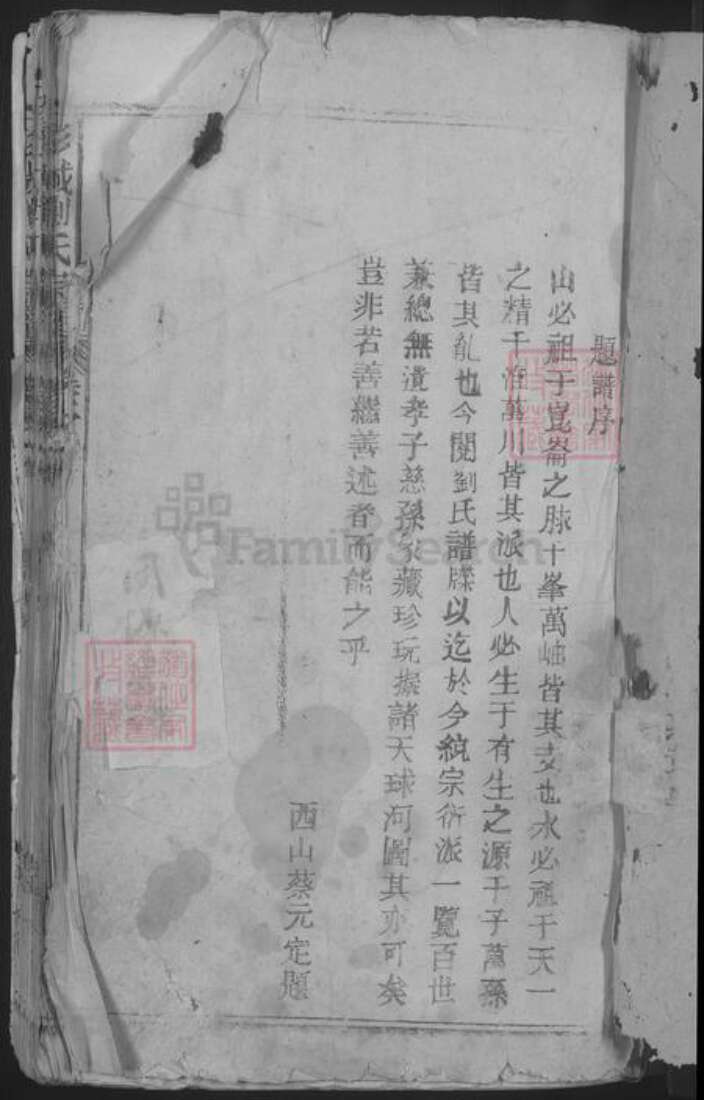 題譜序
山必祖于崑崙之脉千峯萬岫皆其支也水必祖于天一
之精千流萬川皆其派也人必生于有生之源千子萬孫
皆其亂也今閱劉氏譜牒以迄於今統宗衍派一覽百世
兼總無遺孝子慈孫家藏珍玩擬諸天球河圖其亦可矣
豈非若善繼善述者而能之乎
西山蔡元定題
城劉氏宗
FamilySearch